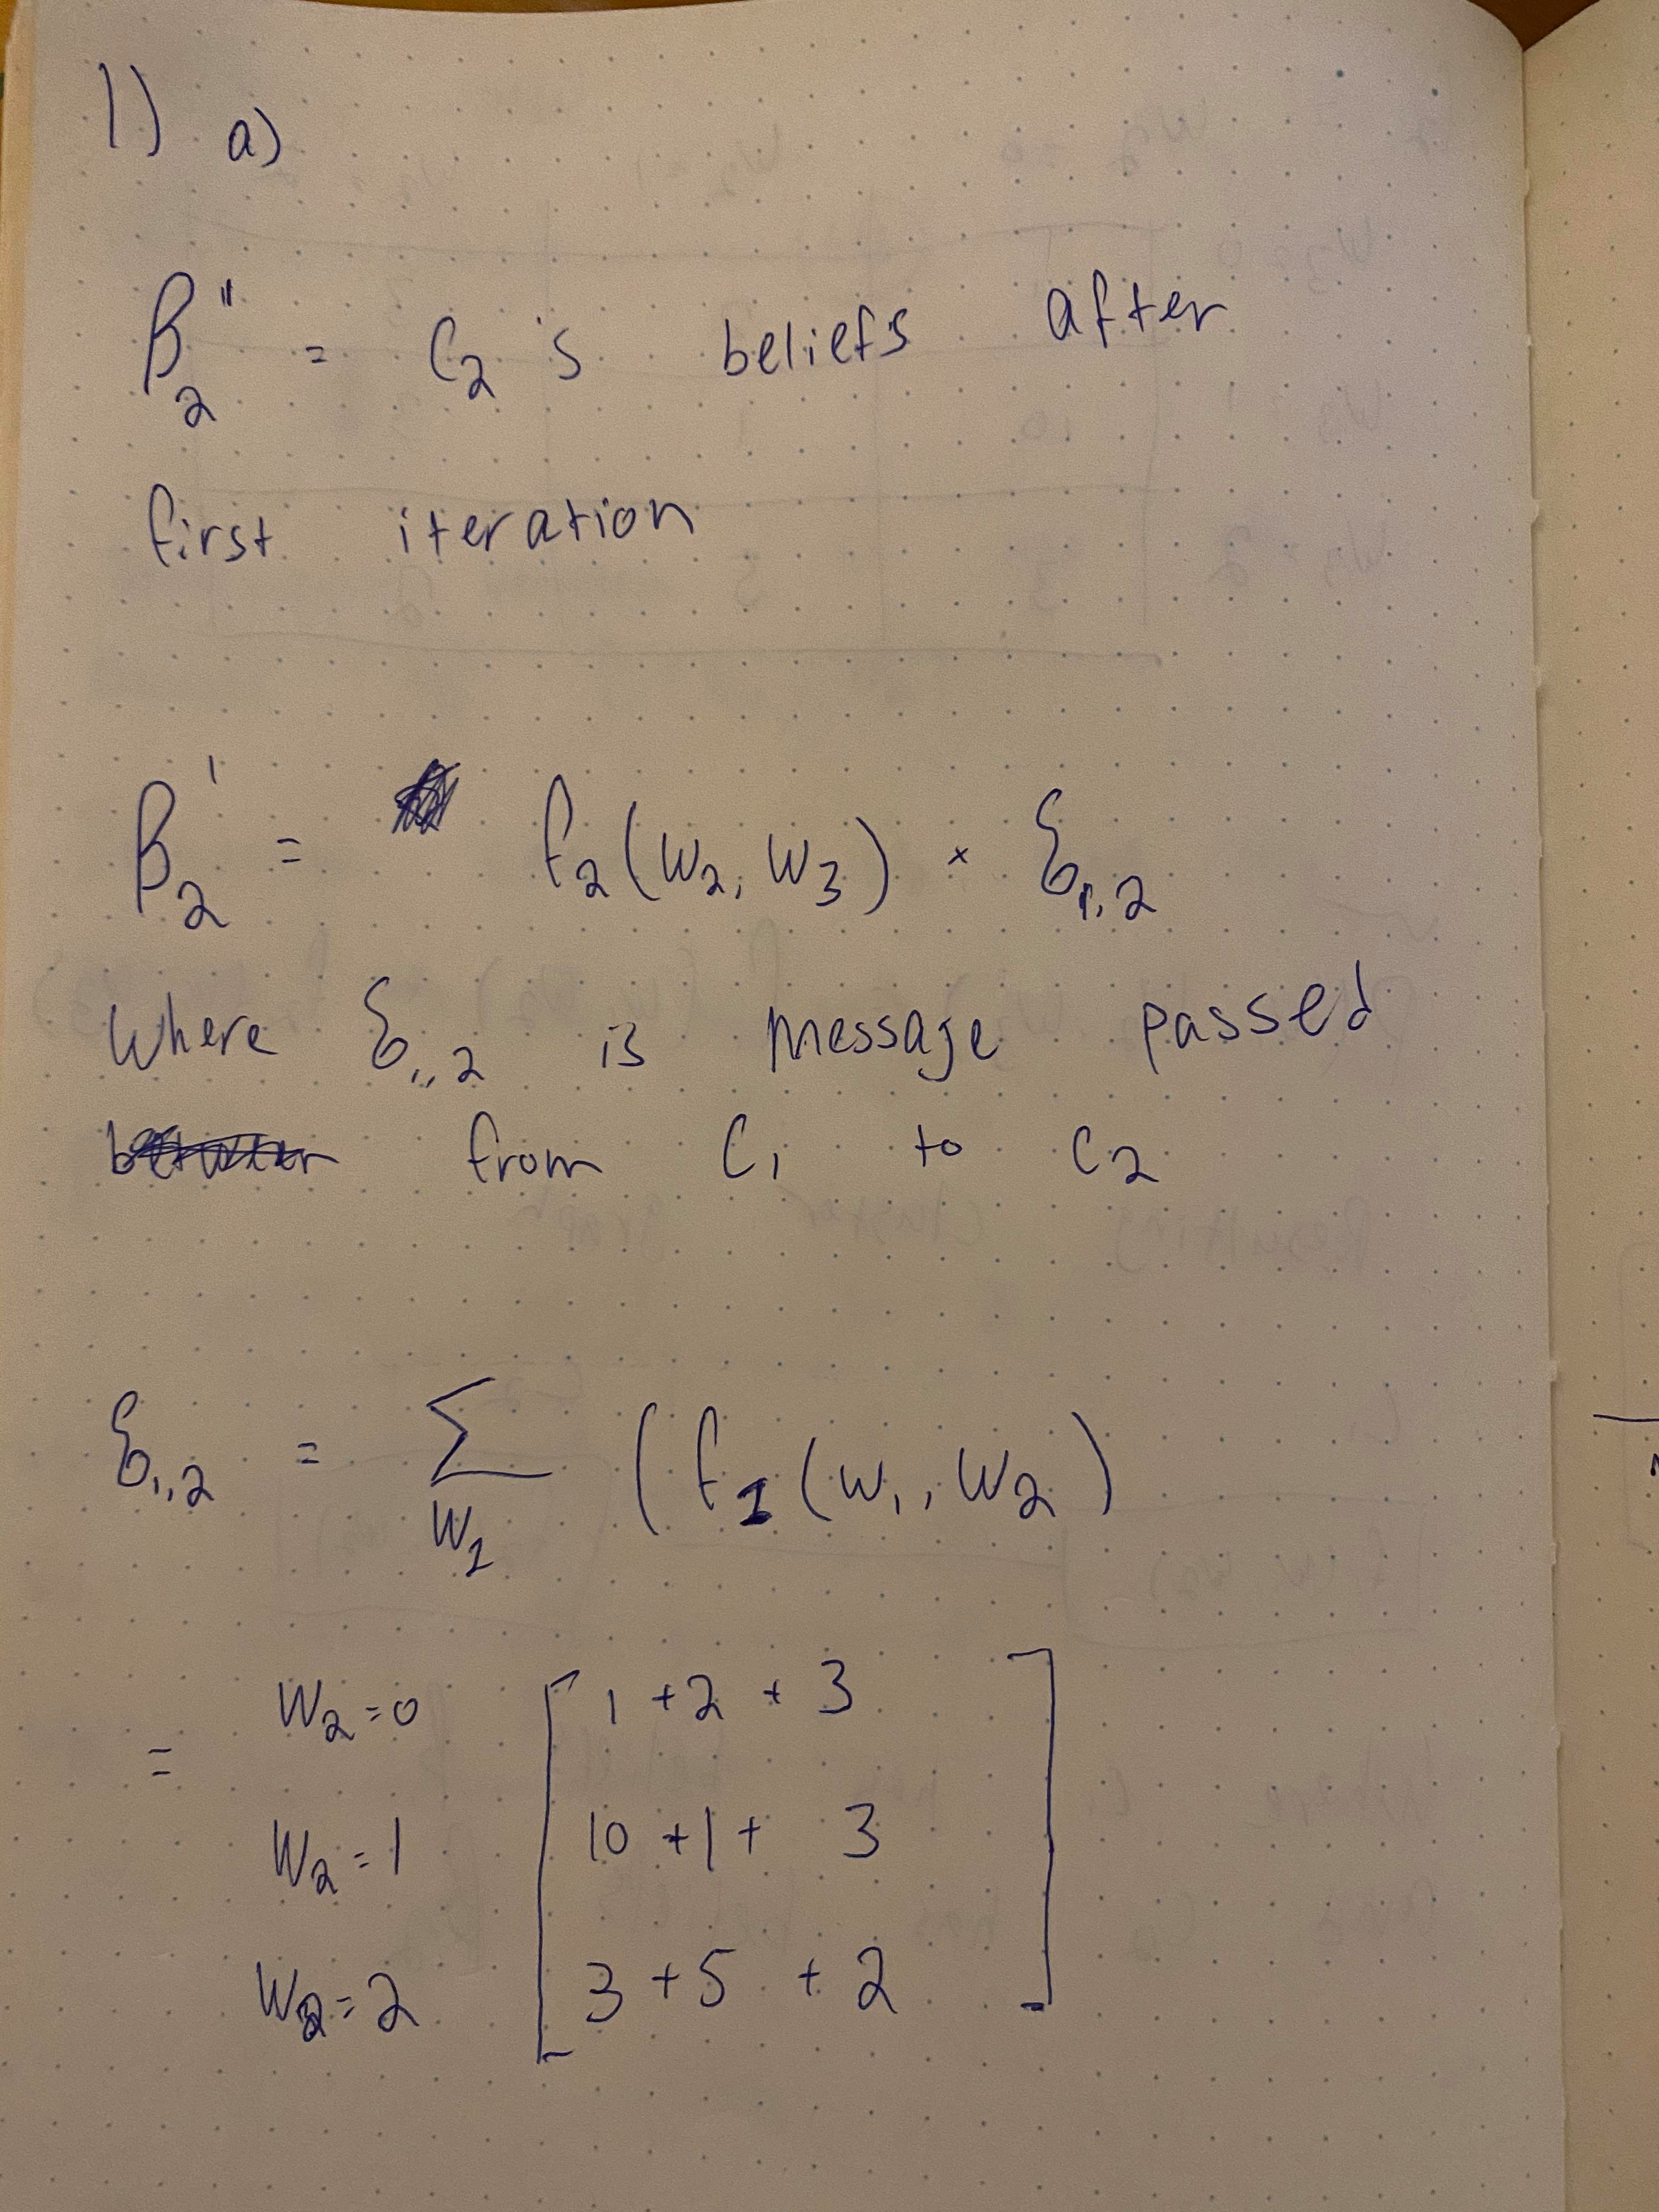 1) a)
β₂'' = C₂'s beliefs after
first iteration
β₂' = f₂(W₂, W₃) × δ₁,₂
Where δ₁,₂ is message passed
from C₁ to C₂
δ₁,₂ = Σ (f₁(W₁, W₂)
W₁
= W₂=0 [ 1 + 2 + 3 ]
W₂=1 [ 10 + 1 + 3 ]
W₂=2 [ 3 + 5 + 2 ]